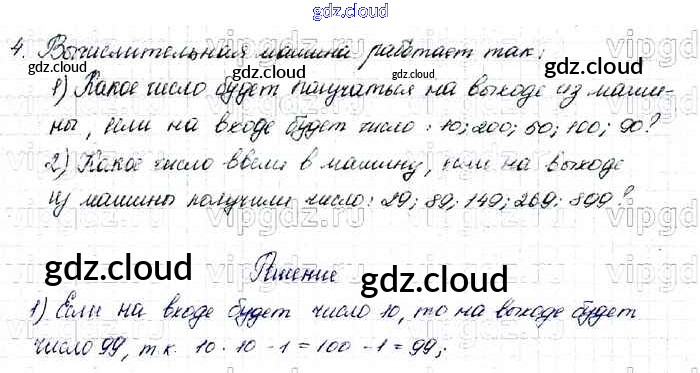 gdz.cloud
4. Вычислительная машина работает так:
gdz.cloud gdz.cloud gdz.cloud
1) Какое число будет получаться на выходе из маши-
ны, если на входе будет число: 10; 200; 50; 100; 90?
2) Какое число ввели в машину, если на выходе
из машины получили число: 29; 89; 149; 269; 899?
gdz.cloud gdz.cloud
Решение
gdz.cloud
1) Если на входе будет число 10, то на выходе будет
число 99, т.к. 10 · 10 - 1 = 100 - 1 = 99;
gdz.cloud